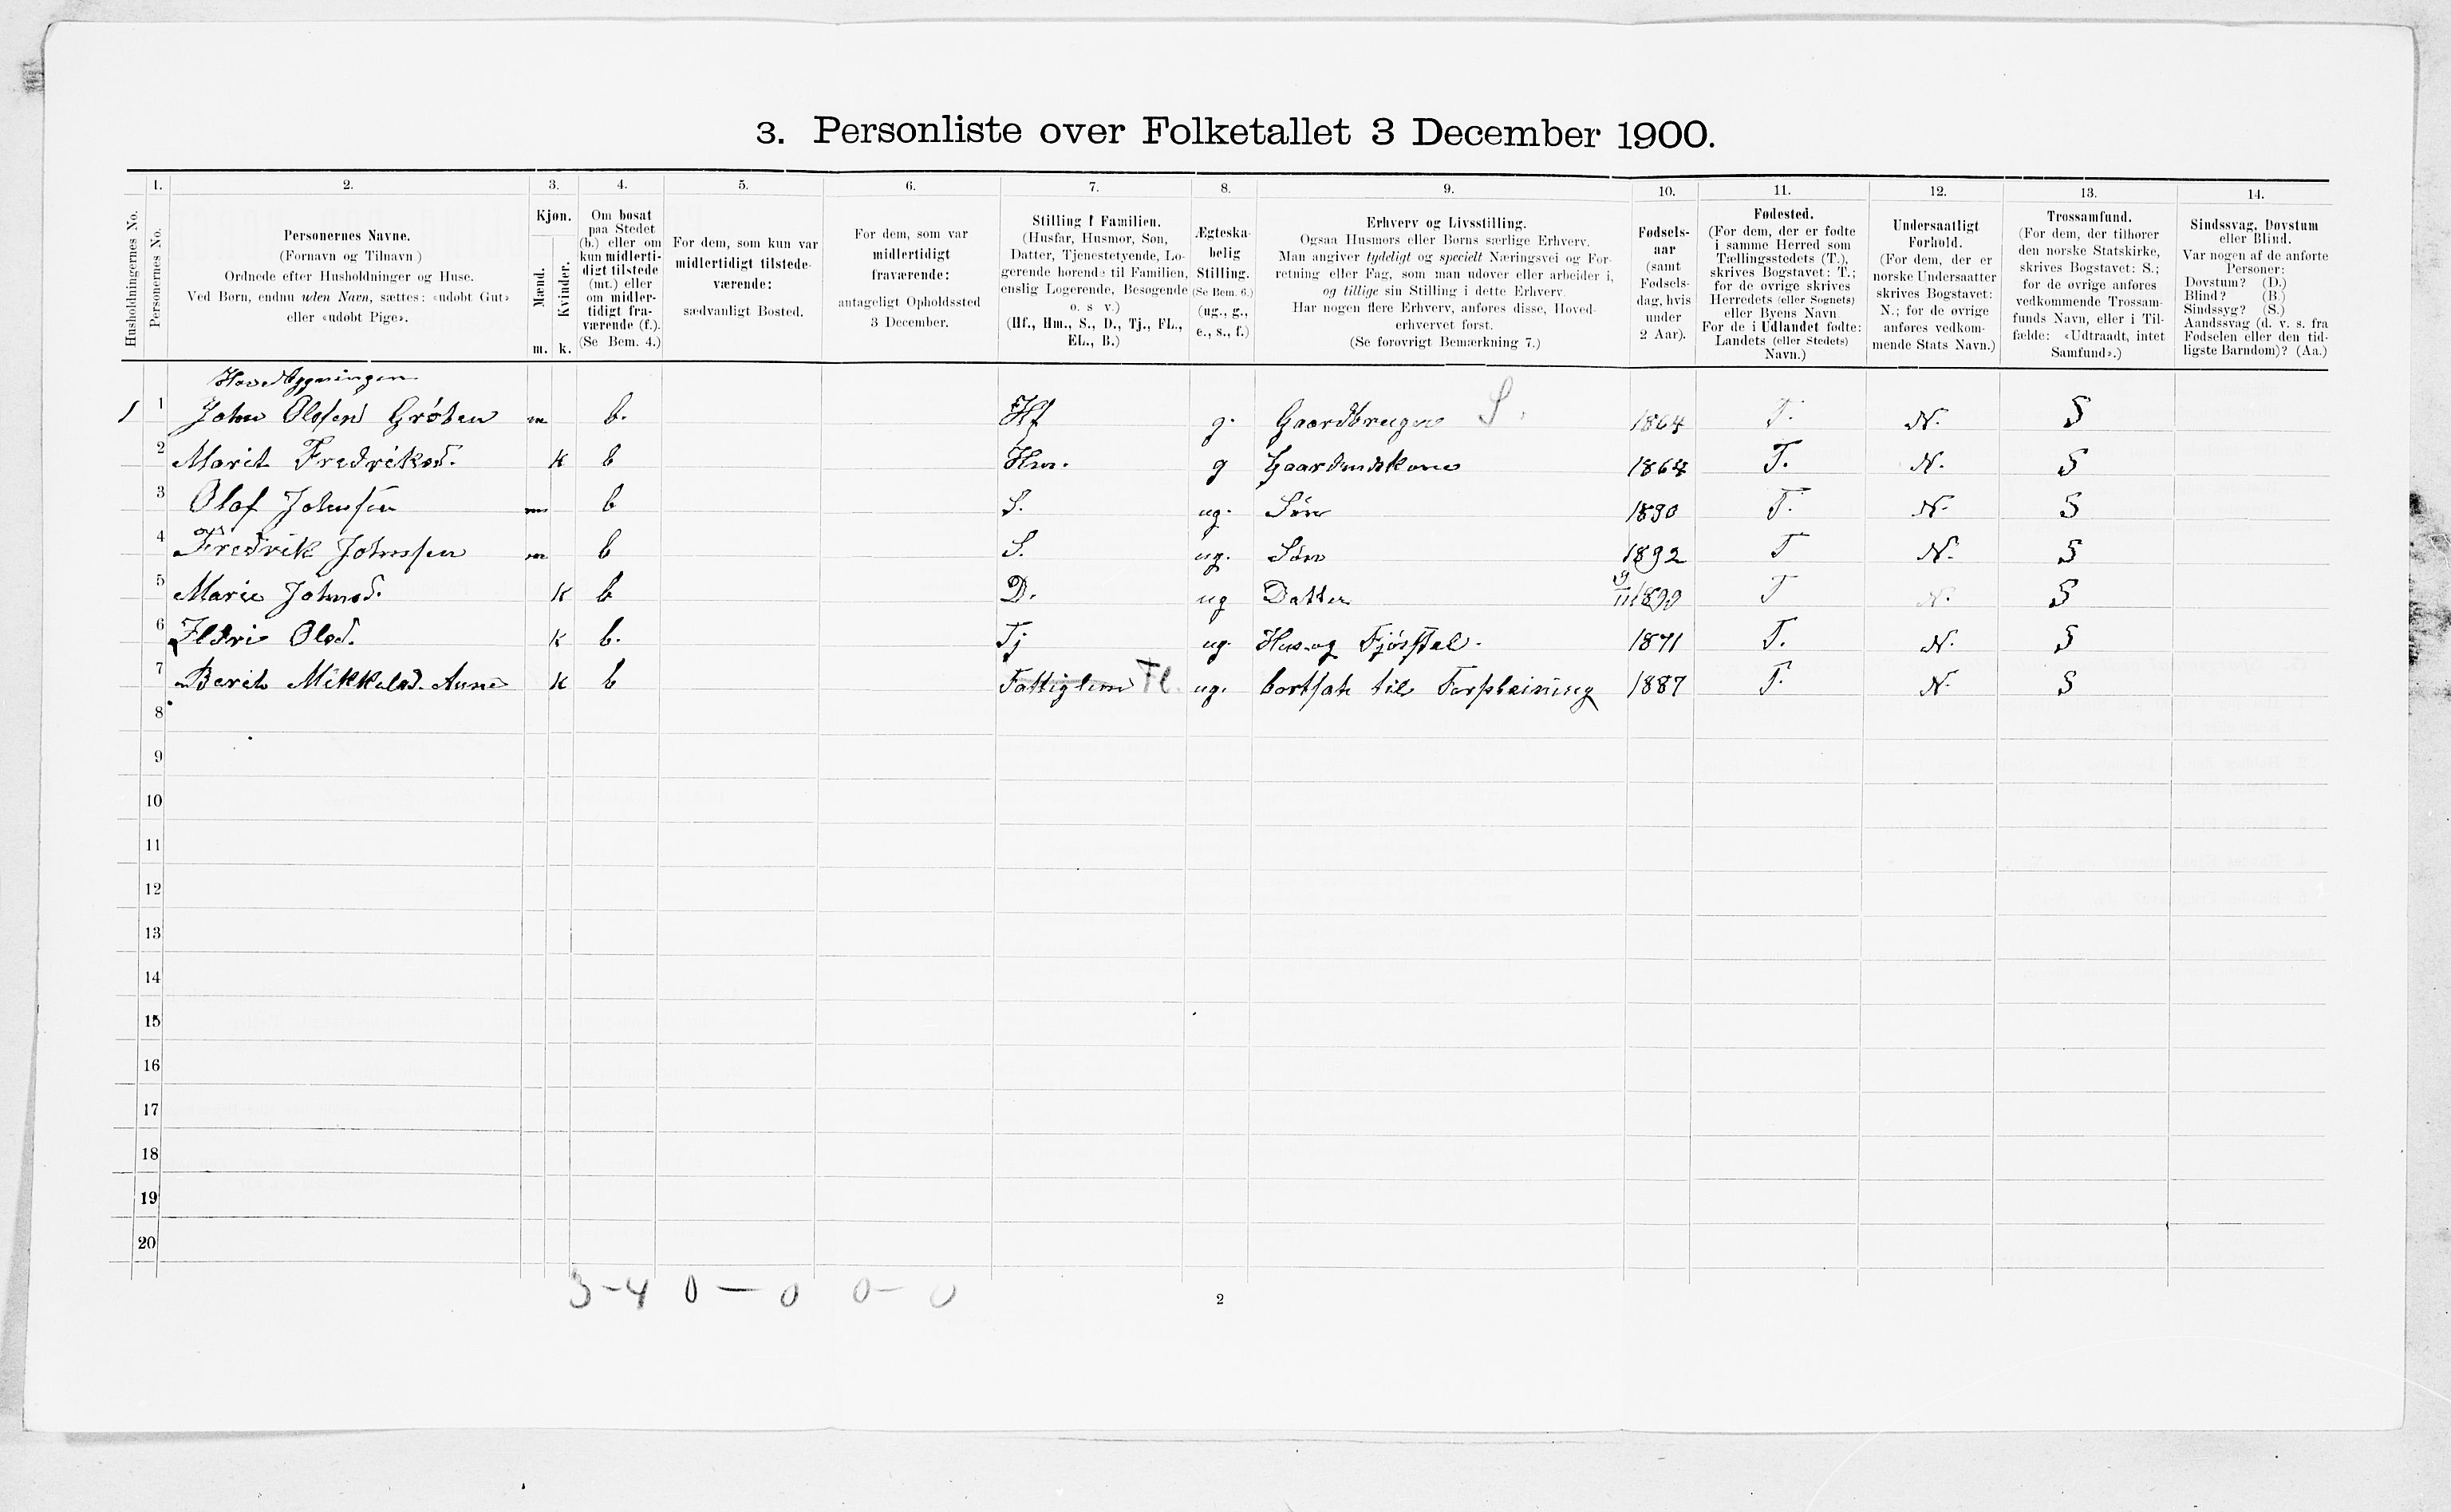 3. Personliste over Folketallet 3 December 1900.
1. 2. 3. 4. 5. 6. 7. 8. 9. 10. 11. 12. 13. 14.
Husholdningernes No.
Personernes No.
Personernes Navne.
(Fornavn og Tilnavn)
Ordnede efter Husholdninger og Huse.
Ved Børn, endnu uden Navn, sættes: «udøbt Gut»
eller «udøbt Pige».
Kjøn.
Mænd.
Kvinder.
m. k.
Om bosat
paa Stedet
(b.) eller om
kun midlerti-
digt tilstede
(mt.) eller
om midler-
tidigt fra-
værende (f.).
(Se Bem. 4.)
For dem, som kun var
midlertidigt tilstede-
værende:
sædvanligt Bosted.
For dem, som var
midlertidigt
fraværende:
antageligt Opholdssted
3 December.
Stilling i Familien.
(Husfar, Husmor, Søn,
Datter, Tjenestetyende, Lo-
gerende hørende til Familien,
enslig Logerende, Besøgende
o. s v.)
(Hf., Hm., S., D., Tj., FL.,
EL., B.)
Ægteska-
belig
Stilling.
(Se Bem. 6.)
(ug., g.,
e., s., f.)
Erhverv og Livsstilling.
Ogsaa Husmors eller Børns særlige Erhverv.
Man angiver tydeligt og specielt Næringsvei og For-
retning eller Fag, som man udøver eller arbeider i,
og tillige sin Stilling i dette Erhverv.
Har nogen flere Erhverv, anføres disse, Hoved-
erhvervet først.
(Se forøvrigt Bemærkning 7.)
Fødsels-
aar
(samt
Fødsels-
dag, hvis
under
2 Aar).
Fødested.
(For dem, der er fødte
i samme Herred som
Tællingsstedets (T.),
skrives Bogstavet: T.;
for de øvrige skrives
Herredets (eller Sognets)
eller Byens Navn
For de i Udlandet fødte:
Landets (eller Stedets)
Navn.)
Undersaatligt
Forhold.
(For dem, der er
norske Undersaatter
skrives Bogstavet:
N.; for de øvrige
anføres vedkom-
mende Stats Navn.)
Trossamfund.
(For dem, der tilhører
den norske Statskirke,
skrives Bogstavet: S.;
for de øvrige anføres
vedkommende Trossam-
funds Navn, eller i Til-
fælde: «Udtraadt, intet
Samfund».)
Sindssvag, Døvstum
eller Blind.
Var nogen af de anførte
Personer:
Døvstum? (D.)
Blind? (B.)
Sindssyg? (S.)
Aandssvag (d. v. s. fra
Fødselen eller den tid-
ligste Barndom)? (Aa.)
Hovedbygningen
1 1 John Olsen Gröten m b. Hf g. Gaardbruger S. 1864 T. N. S
2 Marit Fredriksd. k b Hm. g Gaardmdskone 1864 T. N. S
3 Olaf Johnsen m b S. ug. Søn 1890 T. N. S
4 Fredrik Johnssen m b S. ug. Søn 1892 T N. S
5 Marie Johnsd. k b D. ug Datter 1899 T N. S
6 Ildri Olsd. k b. Tj ug. Hus og Fjösstel. 1871 T. N. S
7 Berit Mikkelsd. Aune k b Fattiglem Fl. ug. bortsat til Forpleining 1887 T. N. S
8
9
10
11
12
13
14
15
16
17
18
19
20
3-4 0-0 0-0
2